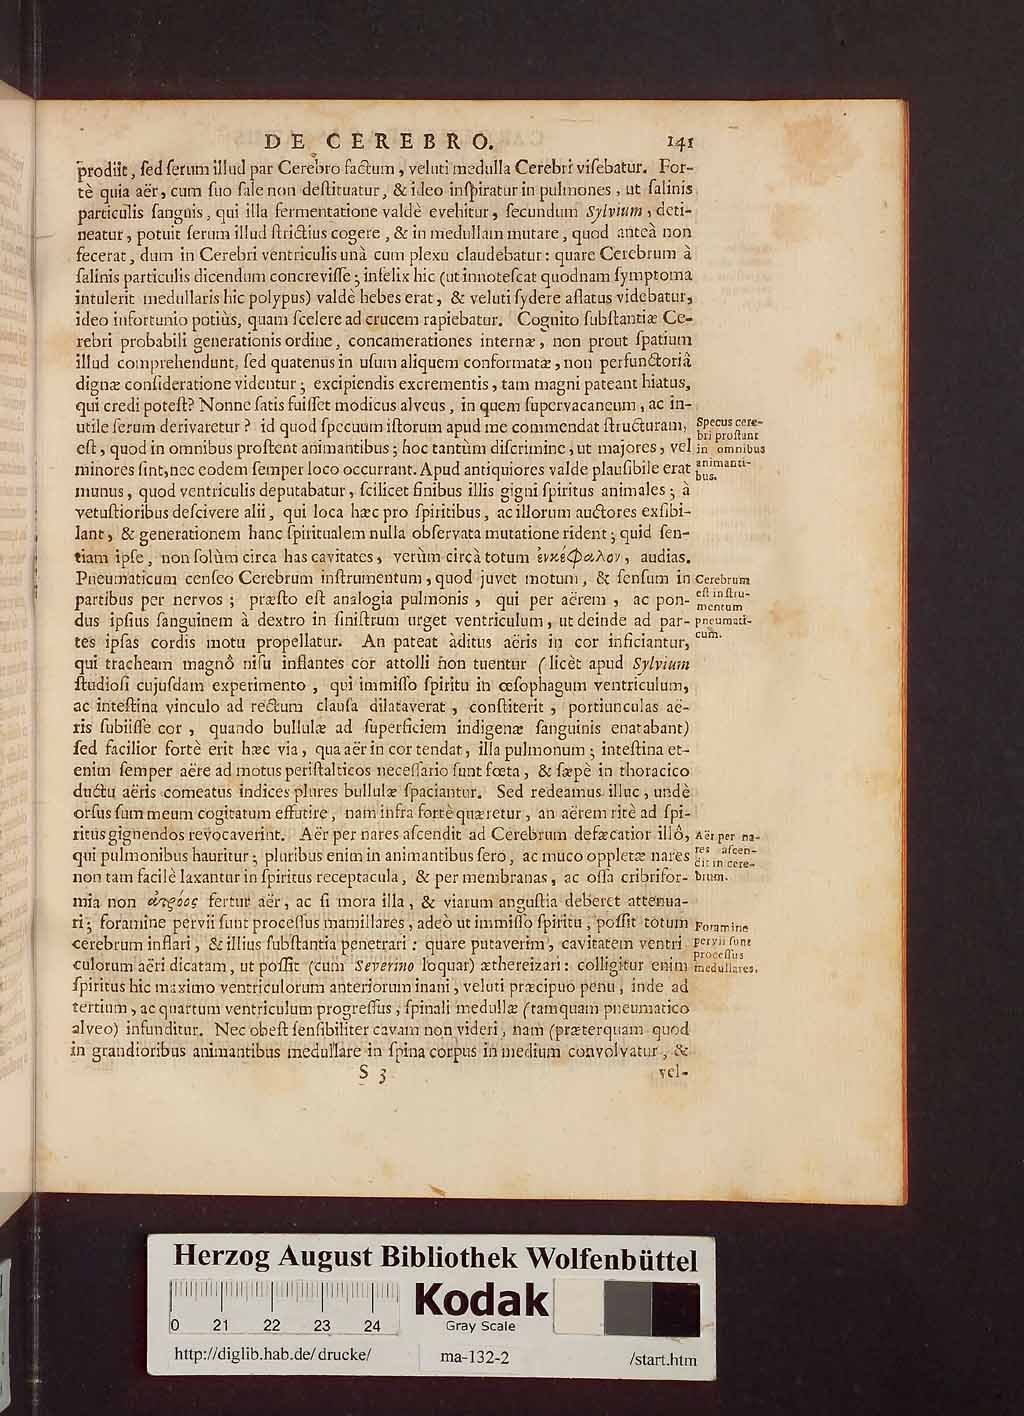 DE CEREBRO. 141
prodiit, ſed ſerum illud par Cerebro factum, veluti medulla Cerebri viſebatur. For-
tè quia aër, cum ſuo ſale non deſtituatur, & ideo inſpiratur in pulmones, ut ſalinis
particulis ſanguis, qui illa fermentatione valdè evehitur, ſecundum Sylvium, deti-
neatur, potuit ſerum illud ſtrictius cogere, & in medullam mutare, quod anteà non
fecerat, dum in Cerebri ventriculis unà cum plexu claudebatur: quare Cerebrum à
ſalinis particulis dicendum concreviſſe; infelix hic (ut innoteſcat quodnam ſymptoma
intulerit medullaris hic polypus) valdè hebes erat, & veluti ſydere afflatus videbatur,
ideo infortunio potiùs, quam ſcelere ad crucem rapiebatur. Cognito ſubſtantiæ Ce-
rebri probabili generationis ordine, concamerationes internæ, non prout ſpatium
illud comprehendunt, ſed quatenus in uſum aliquem conformatæ, non perfunctoriâ
dignæ conſideratione videntur; excipiendis excrementis, tam magni pateant hiatus,
qui credi poteſt? Nonne ſatis fuiſſet modicus alveus, in quem ſupervacaneum, ac in-
utile ſerum derivaretur? id quod ſpecuum iſtorum apud me commendat ſtructuram,
eſt, quod in omnibus proſtent animantibus; hoc tantùm diſcrimine, ut majores, vel
minores ſint, nec eodem ſemper loco occurrant. Apud antiquiores valde plauſibile erat
munus, quod ventriculis deputabatur, ſcilicet finibus illis gigni ſpiritus animales; à
vetuſtioribus deſcivere alii, qui loca hæc pro ſpiritibus, ac illorum auctores exſibi-
lant, & generationem hanc ſpiritualem nulla obſervata mutatione rident; quid ſen-
tiam ipſe, non ſolùm circa has cavitates, verùm circà totum ἐνκέφαλον, audias.
Pneumaticum cenſeo Cerebrum inſtrumentum, quod juvet motum, & ſenſum in
partibus per nervos; præſto eſt analogia pulmonis, qui per aërem, ac pon-
dus ipſius ſanguinem à dextro in ſiniſtrum urget ventriculum, ut deinde ad par-
tes ipſas cordis motu propellatur. An pateat àditus aëris in cor inficiantur,
qui tracheam magnô niſu inflantes cor attolli non tuentur (licèt apud Sylvium
ſtudioſi cujuſdam experimento, qui immiſſo ſpiritu in œſophagum ventriculum,
ac inteſtina vinculo ad rectum clauſa dilataverat, conſtiterit, portiunculas aë-
ris ſubiiſſe cor, quando bullulæ ad ſuperficiem indigenæ ſanguinis enatabant)
ſed facilior fortè erit hæc via, qua aër in cor tendat, illa pulmonum; inteſtina et-
enim ſemper aëre ad motus periſtalticos neceſſario ſunt fœta, & ſæpè in thoracico
ductu aëris comeatus indices plures bullulæ ſpaciantur. Sed redeamus illuc, undè
orſus ſum meum cogitatum effutire, nam infra fortè quæretur, an aërem ritè ad ſpi-
ritus gignendos revocaverint. Aër per nares aſcendit ad Cerebrum defæcatior illô,
qui pulmonibus hauritur; pluribus enim in animantibus ſero, ac muco oppletæ nares
non tam facilè laxantur in ſpiritus receptacula, & per membranas, ac oſſa cribrifor-
mia non fertur aër, ac ſi mora illa, & viarum anguſtia deberet attenua-
ri; foramine pervii ſunt proceſſus mamillares, adeò ut immiſſo ſpiritu, poſſit totum
cerebrum inflari, & illius ſubſtantia penetrari: quare putaverim, cavitatem ventri
culorum aëri dicatam, ut poſſit (cum Severino loquar) æthereizari: colligitur enim
ſpiritus hic maximo ventriculorum anteriorum inani, veluti præcipuo penu, inde ad
tertium, ac quartum ventriculum progreſſus, ſpinali medullæ (tamquam pneumatico
alveo) infunditur. Nec obeſt ſenſibiliter cavam non videri, nam (præterquam quod
in grandioribus animantibus medullare in ſpina corpus in medium convolvatur, &
S 3 vel-
Specus cere-
bri proſtant
in omnibus
animanti-
bus.
Cerebrum
eſt inſtru-
mentum
pneumati-
cum.
Aër per na-
res aſcen-
dit in cere-
brum.
Foramine
pervii ſunt
proceſſus
medullares.
Herzog August Bibliothek Wolfenbüttel
0 21 22 23 24
Kodak
Gray Scale
http://diglib.hab.de/drucke/ ma-132-2 /start.htm